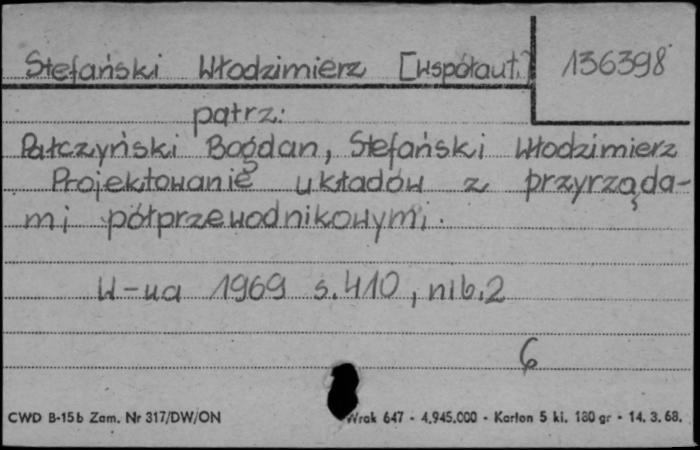 Stefański Włodzimierz [współaut.] 136398
patrz:
Pałczyński Bogdan, Stefański Włodzimierz
Projektowanie układów z przyrząda-
mi półprzewodnikowymi.
W-wa 1969 s. 410, nlb. 2
6
CWD B-15b Zam. Nr 317/DW/ON Wrak 647 - 4.945.000 - Karton 5 kl. 180 gr - 14. 3. 68.